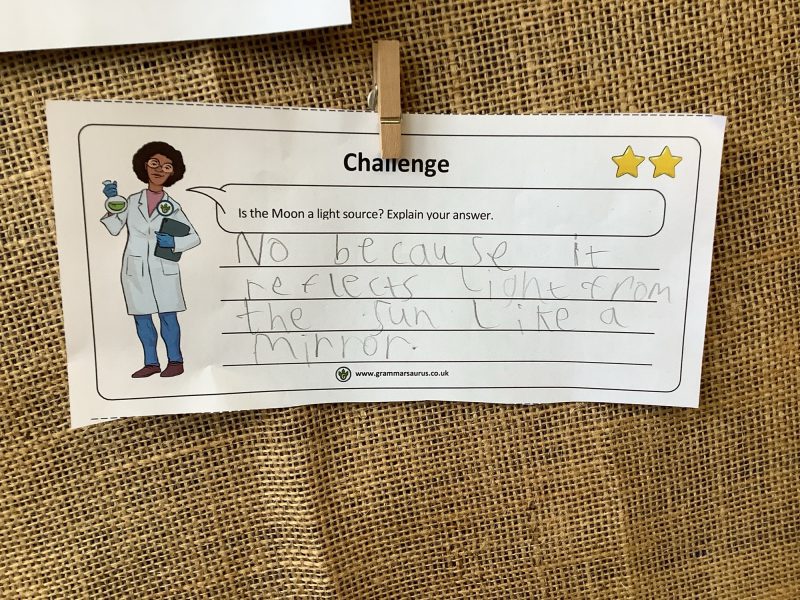 Challenge
Is the Moon a light source? Explain your answer.
No because it
reflects light from
the sun like a
mirror.
www.grammarsaurus.co.uk